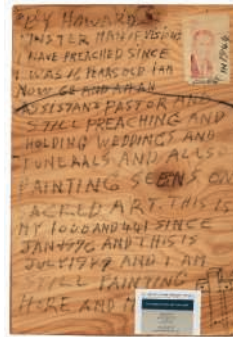 "BY HOWARD
HAVE PREACHED SINCE
I WAS 16 YEARS OLD I AM
NOW 68 AND AM AN
ASSISTANT PASTOR AND
STILL PREACHING AND
HOLDING WEDDINGS AND
FUNERALS AND ALLSO
PAINTING SEENS ON
SACRED ART. THIS IS
MY 1000 AND 401 SINCE
JAN 1976 AND THIS IS
JULY 1979 AND I AM
STILL PAINTING
MORE AND